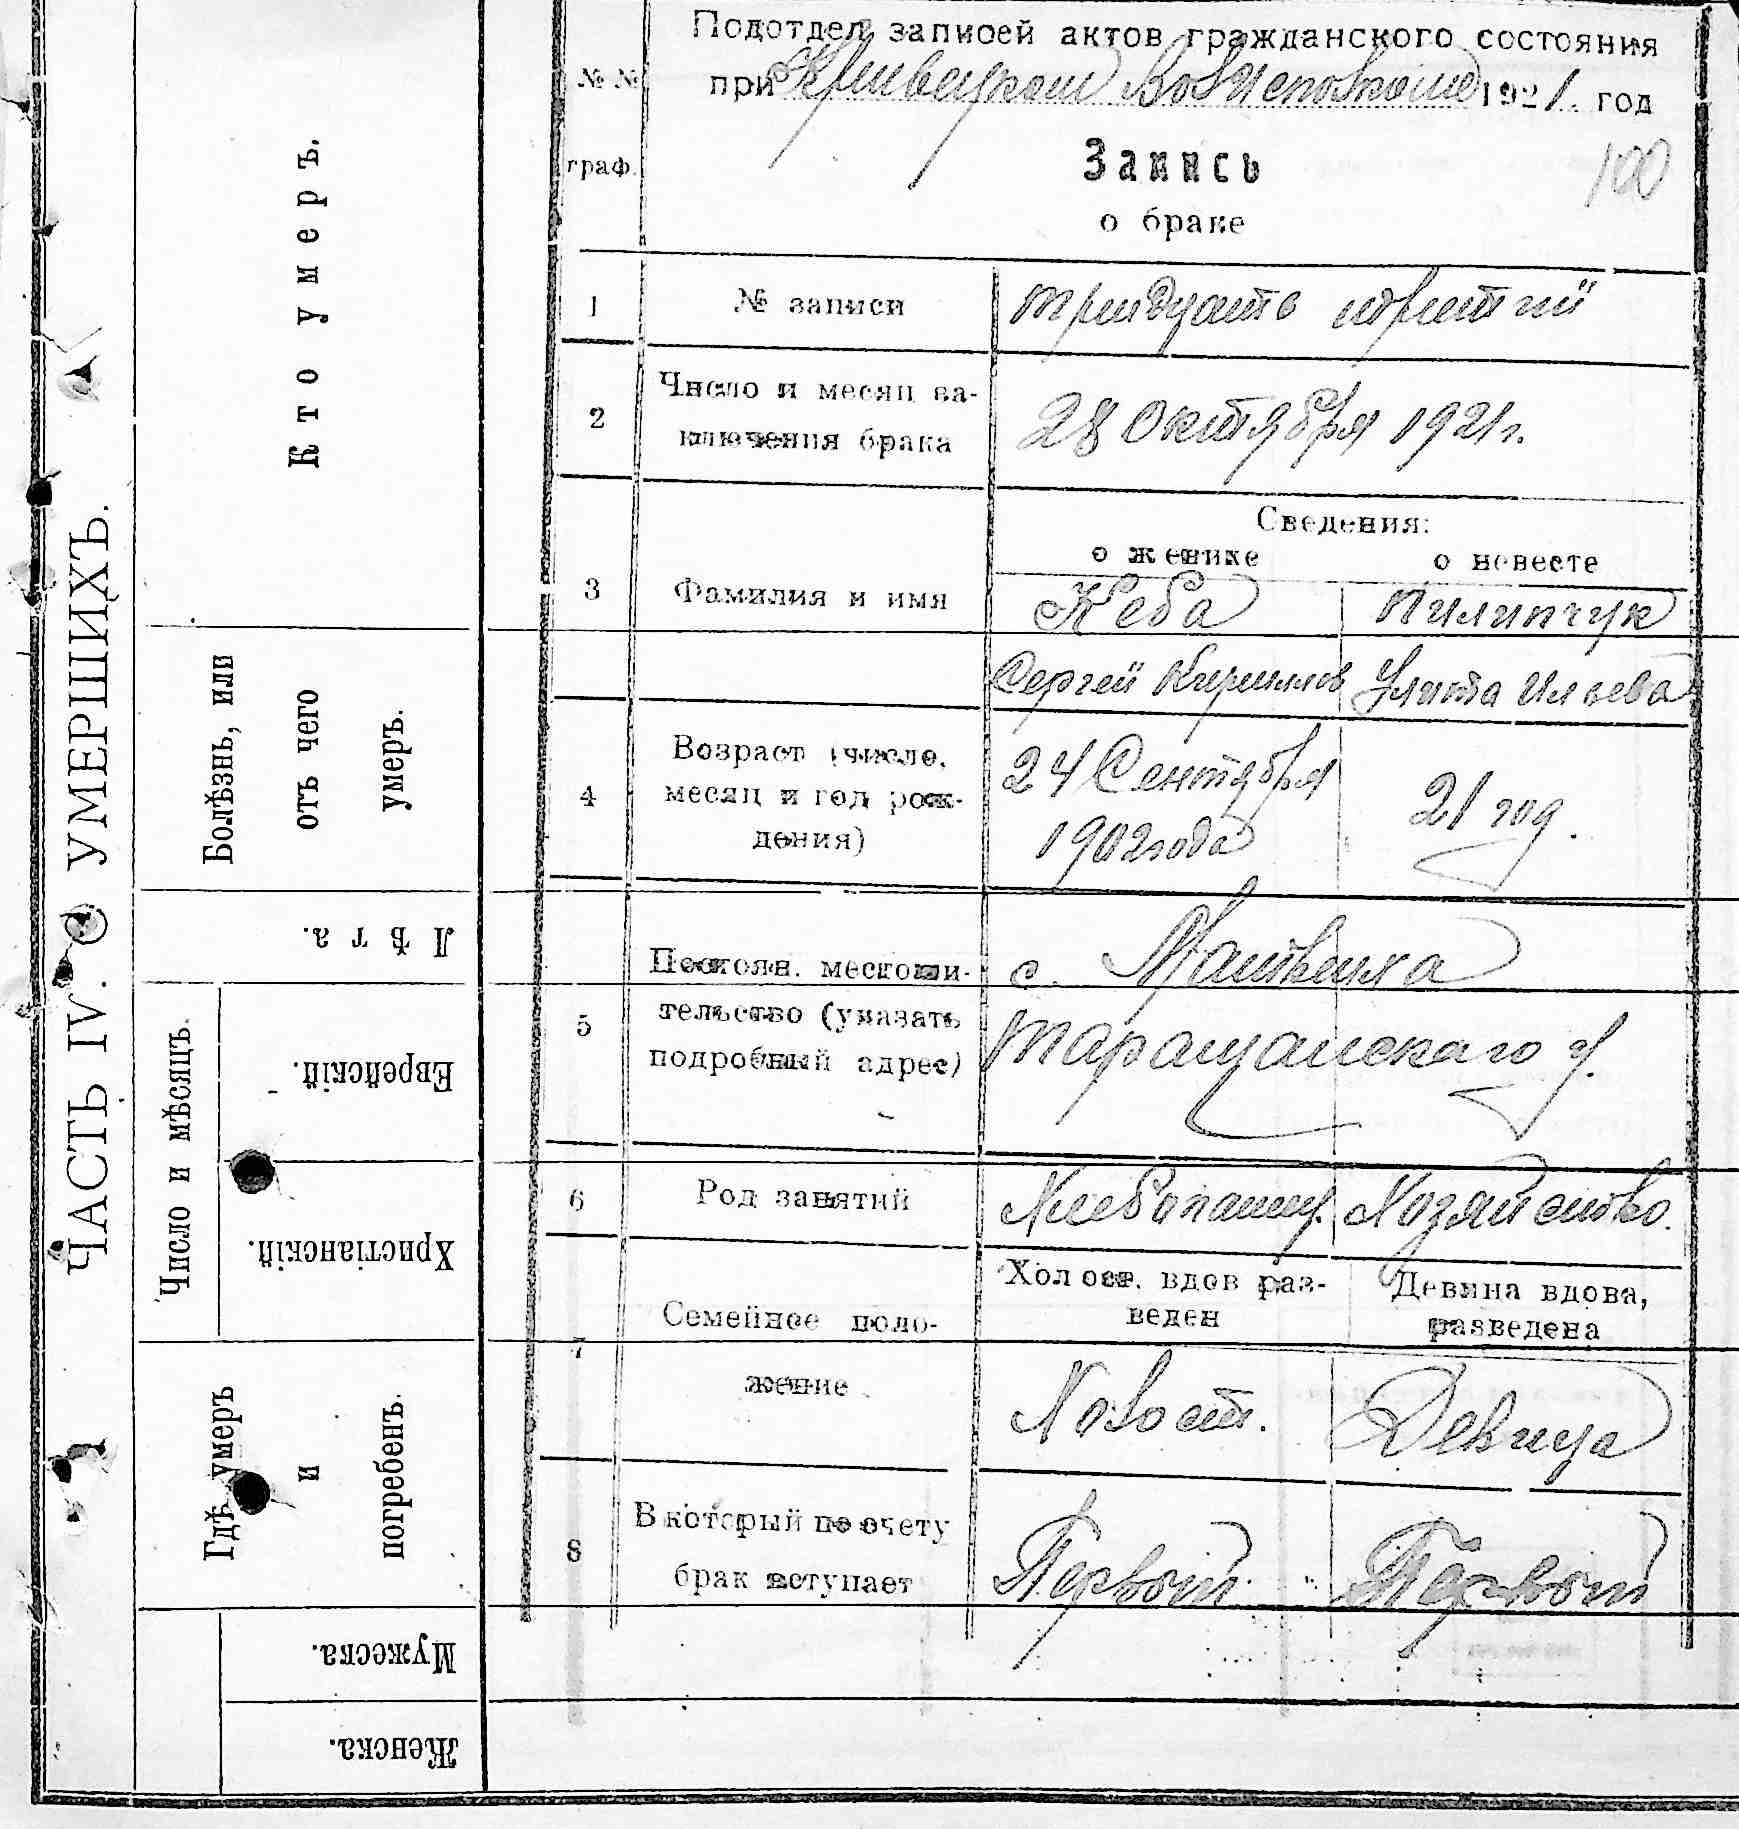 ЧАСТЬ IV. О УМЕРШИХЪ.
Кто умеръ.
Болѣзнь, или
отъ чего
умеръ.
Лѣта.
Число и мѣсяцъ.
Еврейскій.
Христіанскій.
Гдѣ умеръ
и
погребенъ.
Мужеска.
Женска.
Подотдел записей актов гражданского состояния
№ № при Кривецком Волисполкоме 1921. год
граф. Запись
100
о браке
1 № записи тридцать третий
2 Число и месяц за-
ключения брака 28 Октября 1921 г.
Сведения:
о женихе о невесте
3 Фамилия и имя Кеба Пилипчук
Сергей Кириллов Улита Ильева
4 Возраст (число, месяц и год рож-
дения)
24 Сентября
1902 года
21 год.
5 Постоян. местожи-
тельство (указать
подробный адрес)
с.
Таращанского у.
6 Род занятий Хлебопашц. Хозяйство.
7 Семейное поло-
жение
Холост. вдов раз-
веден
Девица вдова,
разведена
Холост. Девица
8 В который по счету
брак вступает
Первый Первый